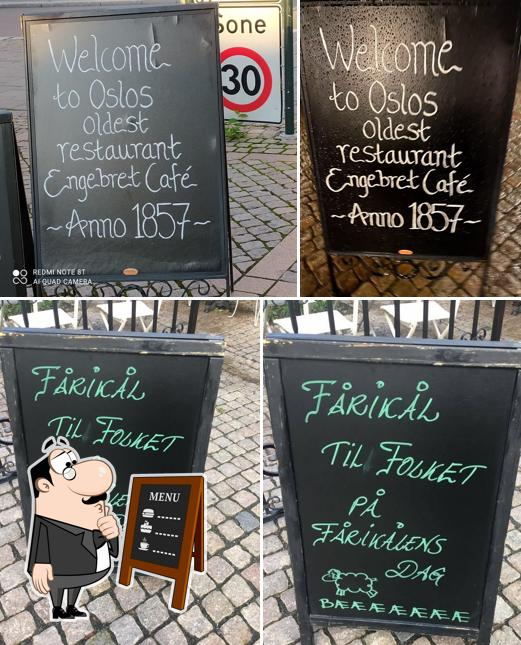 Welcome
to Oslos
oldest
restaurant
Engebret Café
~Anno 1857~
Sone
30
REDMI NOTE 8T
AI QUAD CAMERA
Welcome
to Oslos
oldest
restaurant
Engebret Café
~Anno 1857~
FÅRIKÅL
TIL FOLKET
MENU
FÅRIKÅL
TIL FOLKET
PÅ
FÅRIKÅLENS
DAG
BÆÆÆÆÆÆÆ